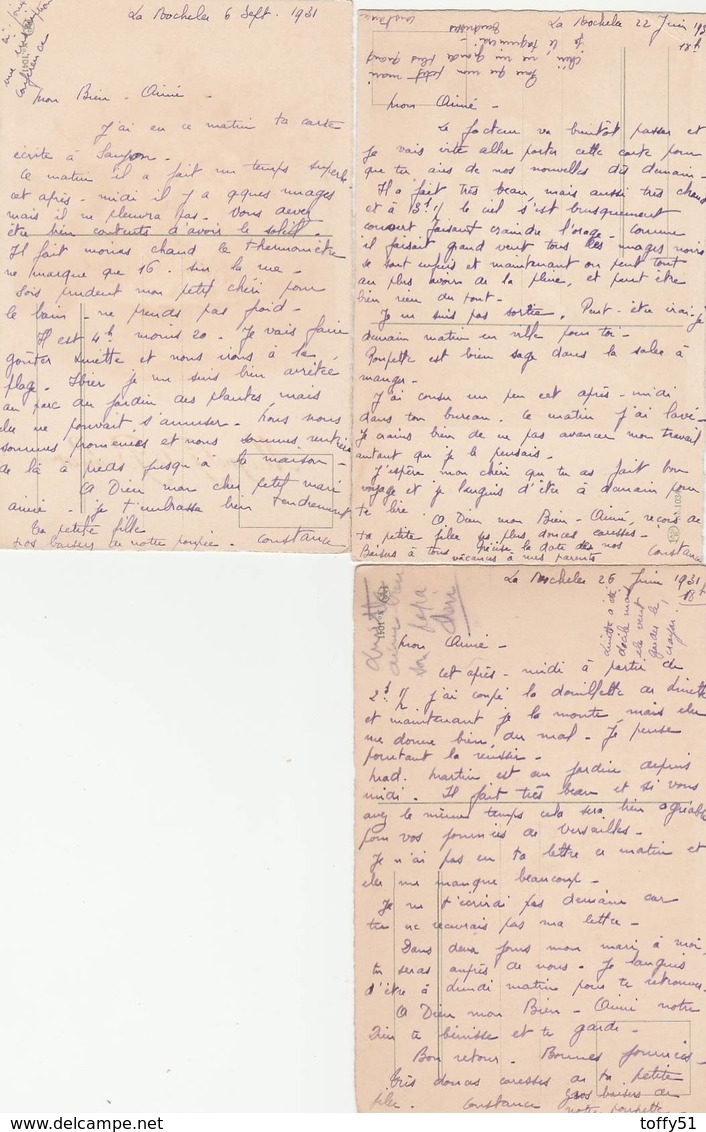 La Rochelle 6 Sept. 1931
Mon Bien-Aimé -
J'ai eu ce matin ta carte
écrite à Saujon.
Ce matin il a fait un temps superbe
cet après-midi il y a qques nuages
mais il ne pleuvra pas. Vous devez
être bien contents d'avoir le soleil.
Il fait moins chaud le thermomètre
ne marque que 16. sur la rue -
Sois prudent mon petit chéri pour
le bain - ne prends pas froid -
Il est 4h moins 20. Je vais faire
goûter Linette et nous irons à la
plage. Hier je me suis bien arrêtée
au parc au jardin des plantes mais
elle ne pouvait s'amuser. Nous nous
sommes promenées et nous sommes rentrées
de là à pieds jusqu'à la maison -
A Dieu mon cher petit mari
aimé - je t'embrasse bien tendrement
Ta petite fille
gos baisers de notre poupée. Constance
La Rochelle 22 Juin 193
18h
Pour que mon petit mari
chéri ai un grande plus grand
je le taquinerai -
Tendresses
Constance
Mon Aimé -
Le facteur va bientôt passer et
je vais vite aller porter cette carte pour
que tu aies de nos nouvelles dès demain -
Il a fait très beau, mais aussi très chaud
et à 15h1/2 le ciel s'est brusquement
couvert faisant craindre l'orage - comme
il faisait grand vent tous les nuages noirs
se sont enfuis et maintenant on peut tout
au plus avoir de la pluie, et peut être
bien rien du tout -
Je ne suis pas sortie. Peut-être irai-je
demain matin en ville pour toi -
Poupette est bien sage dans la salle à
manger -
J'ai cousu un peu cet après-midi
dans ton bureau. Ce matin j'ai lavé -
Je crains bien de ne pas avancer mon travail
autant que je le pensais -
J'espère mon chéri que tu as fait bon
voyage et je languis d'être à demain pour
te lire.
A Dieu mon Bien-Aimé, reçois de
ta petite fille les plus douces caresses -
Baisers à tous précise la date de nos
vacances à mes parents
Constance
La Rochelle 26 Juin 1931
18h
Linette a été
docile mais
elle veut
garder le
crayon.
Linette
aime bien
son papa
chéri
Mon Aimé -
Cet après-midi à partir de
2h1/2 j'ai coupé la douillette de Linette
et maintenant je la monte, mais elle
me donne bien du mal - Je pense
pourtant la réussir -
Mad. Martin est au jardin depuis
midi. Il fait très beau et si vous
avez le même temps cela sera bien agréable
pour vos journées de Versailles -
Je n'ai pas eu ta lettre ce matin et
elle me manque beaucoup -
Je ne t'écrirai pas demain car
tu ne recevrais pas ma lettre -
Dans deux jours mon mari à moi,
tu seras auprès de nous - Je languis
d'être à lundi matin pour te retrouver.
A Dieu mon Bien-Aimé notre
Dieu te bénisse et te garde -
Bon retour - Bonnes journées -
Très douces caresses de ta petite
fille. Constance gros baisers de
notre poupette
toffy51